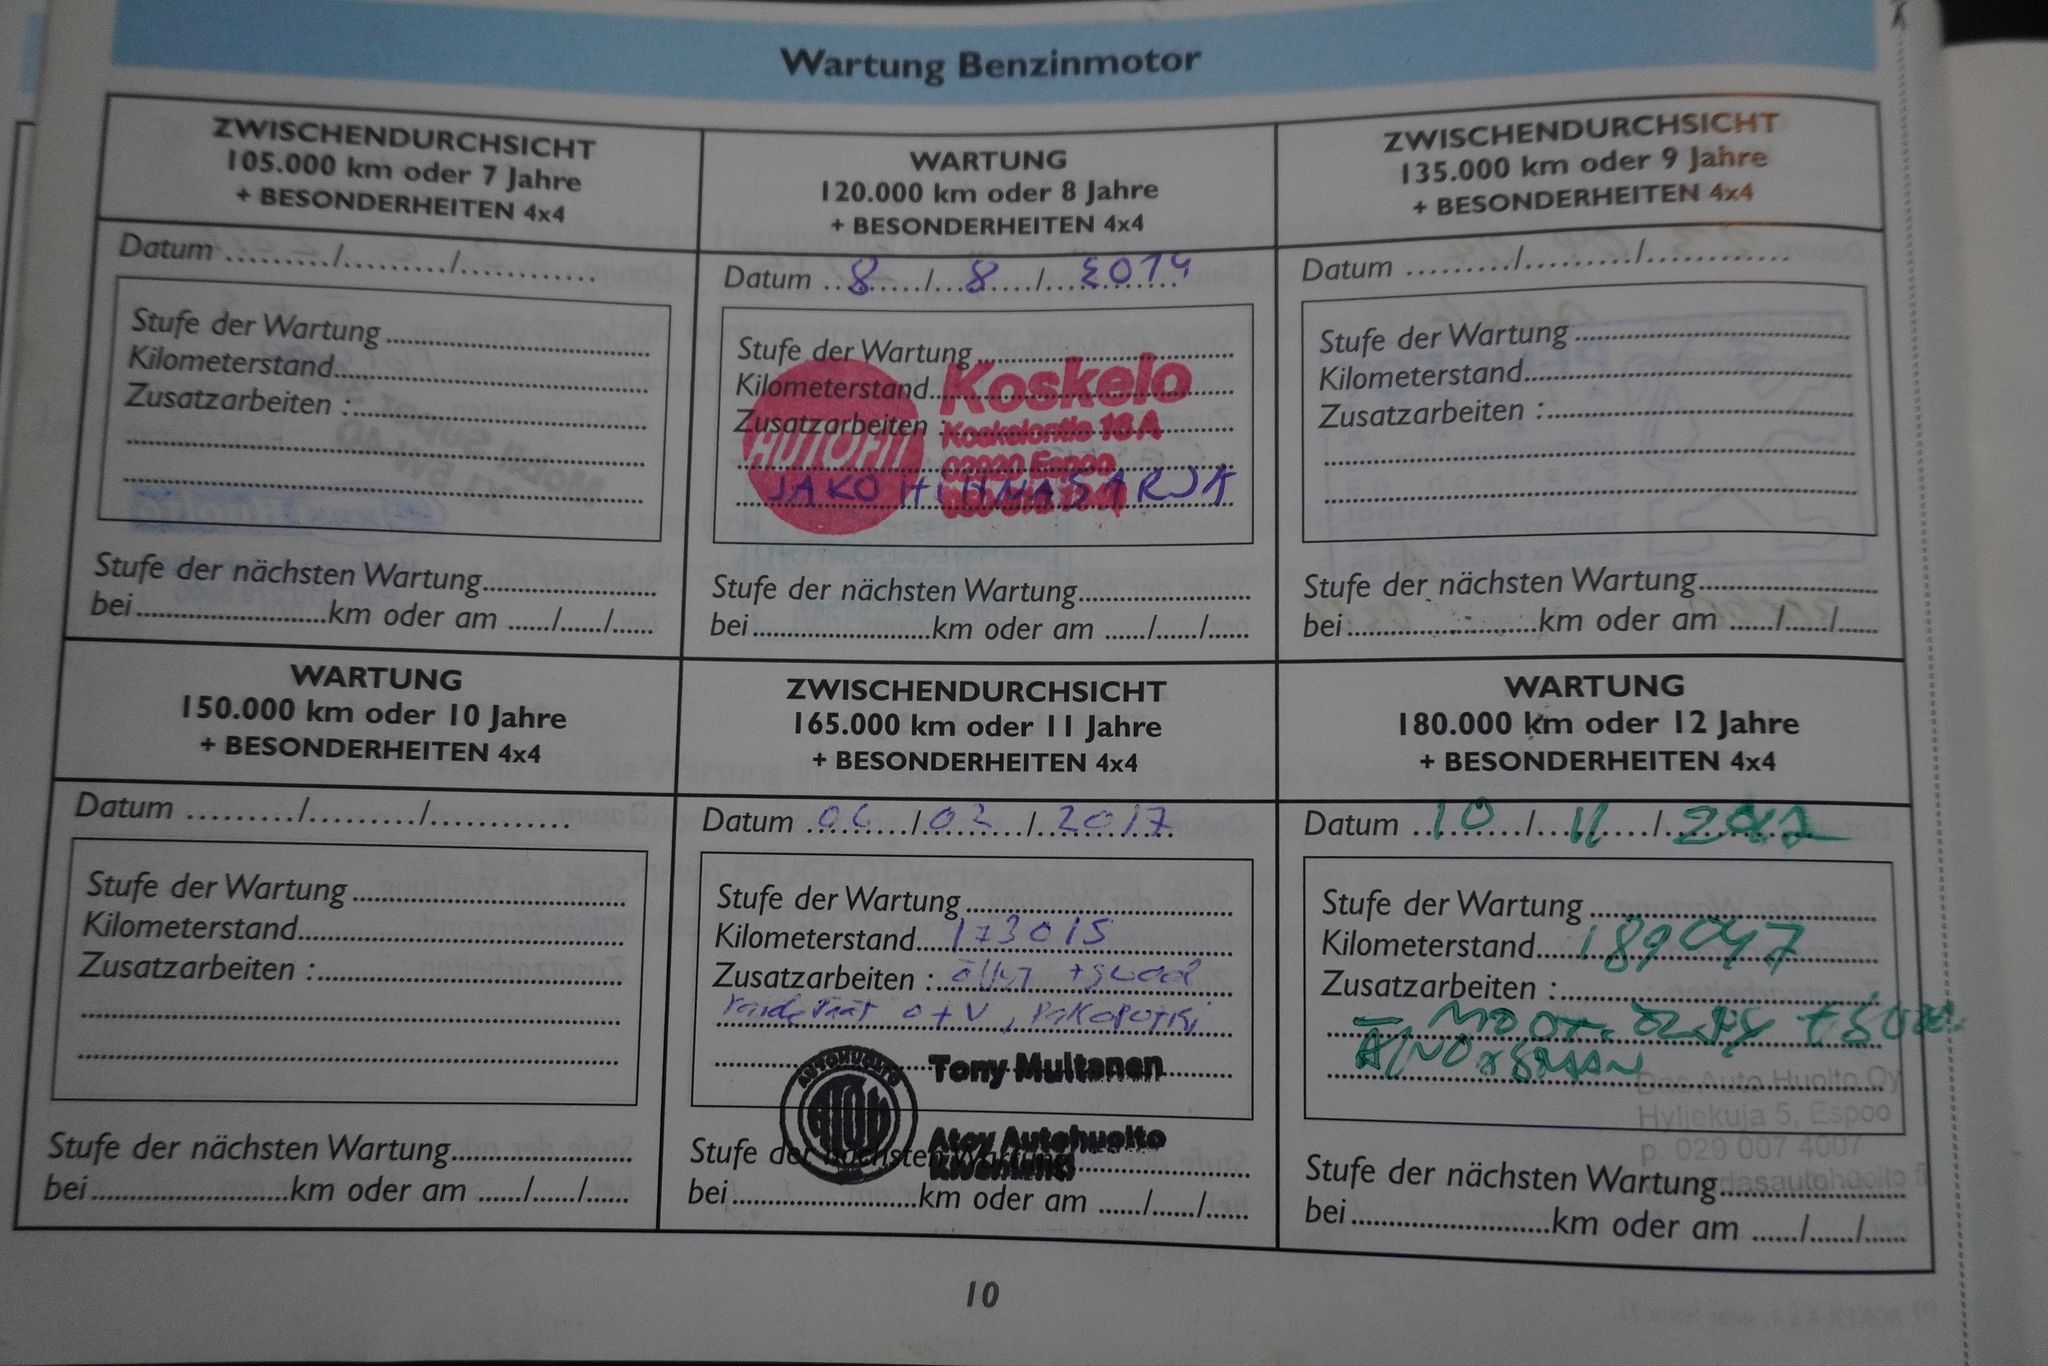 Wartung Benzinmotor
ZWISCHENDURCHSICHT
105.000 km oder 7 Jahre
+ BESONDERHEITEN 4x4
Datum ........./........./............
Stufe der Wartung
Kilometerstand
Zusatzarbeiten :
Stufe der nächsten Wartung
bei km oder am ....../....../......
WARTUNG
120.000 km oder 8 Jahre
+ BESONDERHEITEN 4x4
Datum 8 / 8 / 2014
Stufe der Wartung
Kilometerstand
Zusatzarbeiten :
AUTOFIT Koskelo
Koskelontie 18 A
02920 Espoo
JAKOHIHNASARJA
Stufe der nächsten Wartung
bei km oder am ....../....../......
ZWISCHENDURCHSICHT
135.000 km oder 9 Jahre
+ BESONDERHEITEN 4x4
Datum ........./........./............
Stufe der Wartung
Kilometerstand
Zusatzarbeiten :
Stufe der nächsten Wartung
bei km oder am ....../....../......
WARTUNG
150.000 km oder 10 Jahre
+ BESONDERHEITEN 4x4
Datum ........./........./............
Stufe der Wartung
Kilometerstand
Zusatzarbeiten :
Stufe der nächsten Wartung
bei km oder am ....../....../......
ZWISCHENDURCHSICHT
165.000 km oder 11 Jahre
+ BESONDERHEITEN 4x4
Datum / 02 / 2017
Stufe der Wartung
Kilometerstand 173015
Zusatzarbeiten : öljyt + suod.
O+V,
AUTOHUOLTO
ATOY
Tony Multanen
Atoy Autohuolto
Stufe der nächsten Wartung
bei km oder am ....../....../......
WARTUNG
180.000 km oder 12 Jahre
+ BESONDERHEITEN 4x4
Datum 10 / 11 /
Stufe der Wartung
Kilometerstand 189047
Zusatzarbeiten :
Das Auto Huolto Oy
Hyljekuja 5, Espoo
p. 029 007 4007
dasautohuolto.fi
Stufe der nächsten Wartung
bei km oder am ....../....../......
10